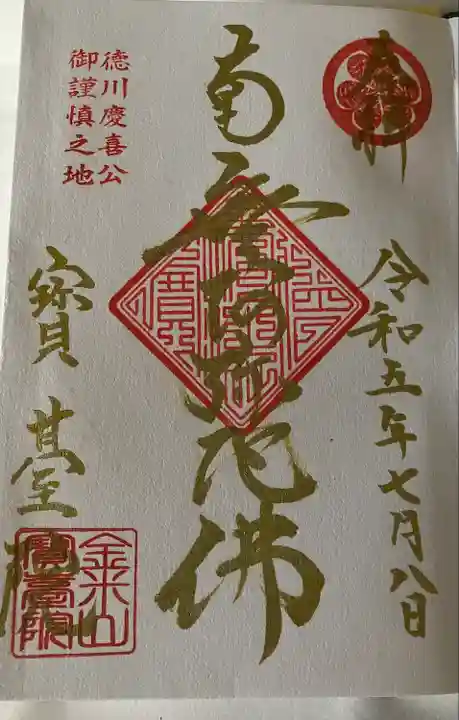 奉拝
令和五年七月八日
南無阿弥陀佛
徳川慶喜公
御謹慎之地
寳臺院
金米山
寳臺院